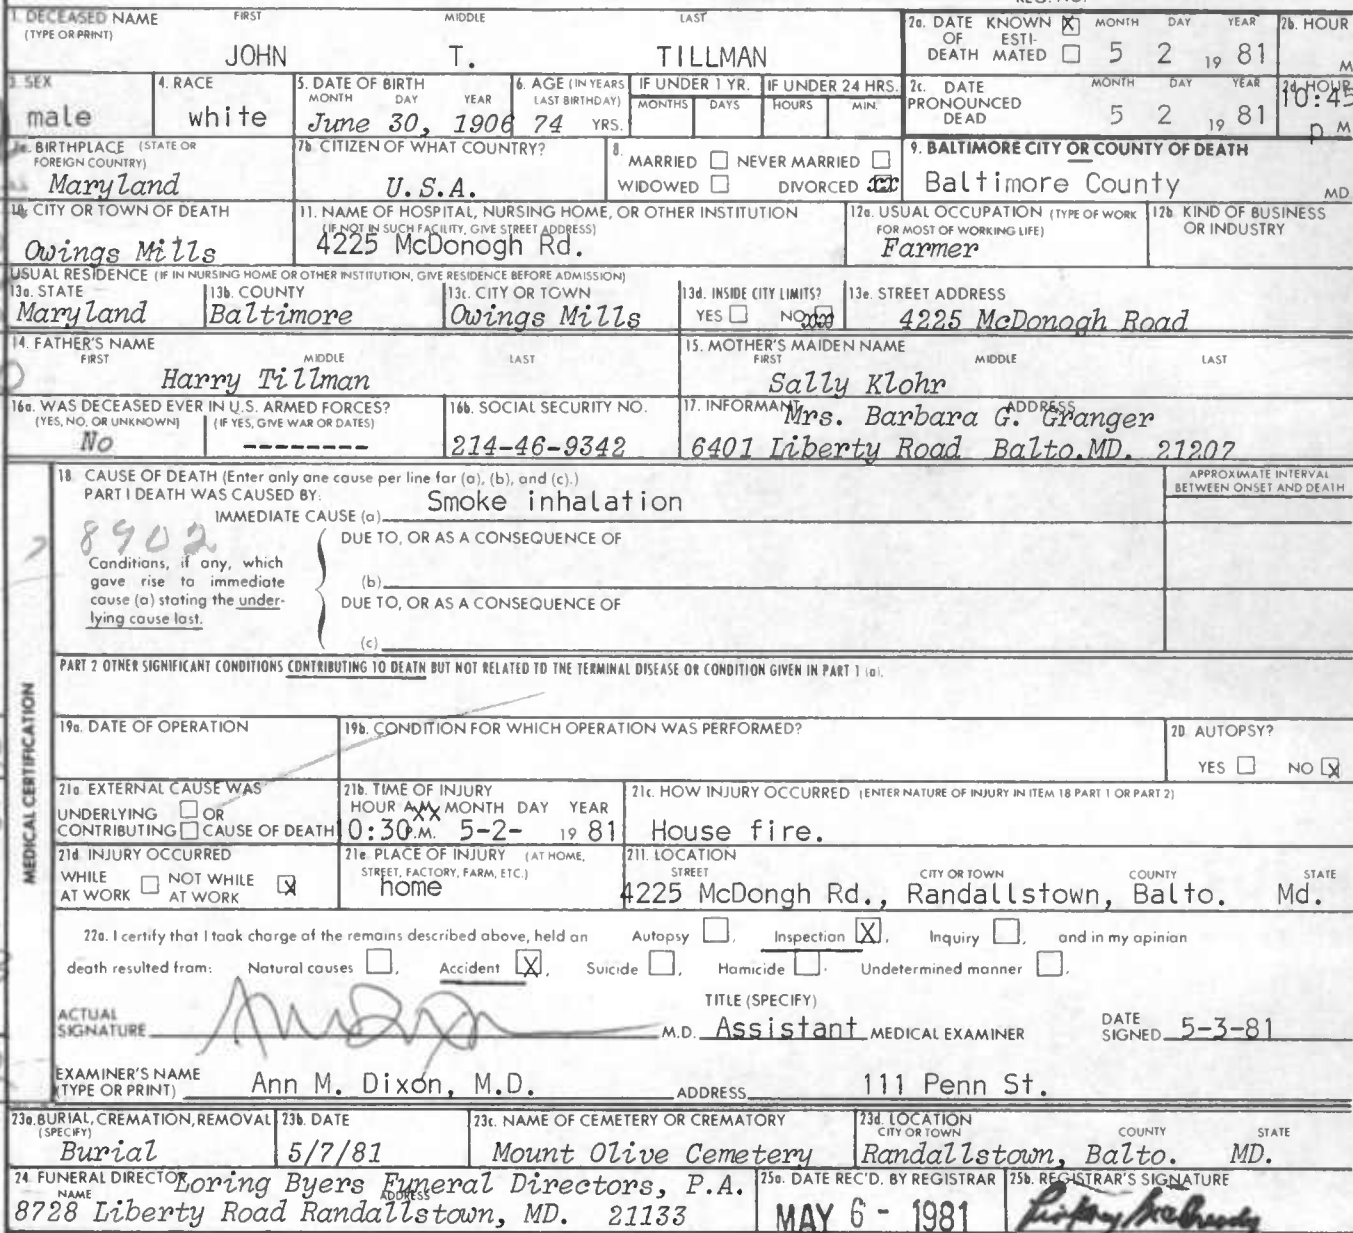 1. DECEASED NAME FIRST MIDDLE LAST
(TYPE OR PRINT)
JOHN T. TILLMAN
2a. DATE KNOWN X MONTH DAY YEAR
OF ESTI-
DEATH MATED 5 2 19 81
2b. HOUR
M
3. SEX
male
4. RACE
white
5. DATE OF BIRTH
MONTH DAY YEAR
June 30, 1906
6. AGE (IN YEARS
LAST BIRTHDAY)
74 YRS.
IF UNDER 1 YR.
MONTHS DAYS
IF UNDER 24 HRS.
HOURS MIN.
2c. DATE MONTH DAY YEAR
PRONOUNCED
DEAD 5 2 19 81
2d. HOUR
10:45
p M
7a. BIRTHPLACE (STATE OR
FOREIGN COUNTRY)
Maryland
7b. CITIZEN OF WHAT COUNTRY?
U.S.A.
8. MARRIED NEVER MARRIED
WIDOWED DIVORCED xx
9. BALTIMORE CITY OR COUNTY OF DEATH
Baltimore County MD.
10. CITY OR TOWN OF DEATH
Owings Mills
11. NAME OF HOSPITAL, NURSING HOME, OR OTHER INSTITUTION
(IF NOT IN SUCH FACILITY, GIVE STREET ADDRESS)
4225 McDonogh Rd.
12a. USUAL OCCUPATION (TYPE OF WORK
FOR MOST OF WORKING LIFE)
Farmer
12b. KIND OF BUSINESS
OR INDUSTRY
USUAL RESIDENCE (IF IN NURSING HOME OR OTHER INSTITUTION, GIVE RESIDENCE BEFORE ADMISSION)
13a. STATE
Maryland
13b. COUNTY
Baltimore
13c. CITY OR TOWN
Owings Mills
13d. INSIDE CITY LIMITS?
YES NO
13e. STREET ADDRESS
4225 McDonogh Road
14. FATHER'S NAME
FIRST MIDDLE LAST
Harry Tillman
15. MOTHER'S MAIDEN NAME
FIRST MIDDLE LAST
Sally Klohr
16a. WAS DECEASED EVER IN U.S. ARMED FORCES?
(YES, NO, OR UNKNOWN) (IF YES, GIVE WAR OR DATES)
No --------
16b. SOCIAL SECURITY NO.
214-46-9342
17. INFORMANT ADDRESS
Mrs. Barbara G. Granger
6401 Liberty Road Balto.MD. 21207
18. CAUSE OF DEATH (Enter only one cause per line for (a), (b), and (c).)
PART I DEATH WAS CAUSED BY:
IMMEDIATE CAUSE (a) Smoke inhalation
APPROXIMATE INTERVAL
BETWEEN ONSET AND DEATH
8902
DUE TO, OR AS A CONSEQUENCE OF
Conditions, if any, which
gave rise to immediate
cause (a) stating the under-
lying cause last.
(b)
DUE TO, OR AS A CONSEQUENCE OF
(c)
PART 2 OTHER SIGNIFICANT CONDITIONS CONTRIBUTING TO DEATH BUT NOT RELATED TO THE TERMINAL DISEASE OR CONDITION GIVEN IN PART 1 (a).
MEDICAL CERTIFICATION
19a. DATE OF OPERATION
19b. CONDITION FOR WHICH OPERATION WAS PERFORMED?
20. AUTOPSY?
YES NO X
21a. EXTERNAL CAUSE WAS
UNDERLYING OR
CONTRIBUTING CAUSE OF DEATH
21b. TIME OF INJURY
HOUR A.M. MONTH DAY YEAR
0:30 P.M. 5-2- 19 81
21c. HOW INJURY OCCURRED (ENTER NATURE OF INJURY IN ITEM 18 PART 1 OR PART 2)
House fire.
21d. INJURY OCCURRED
WHILE AT WORK NOT WHILE AT WORK X
21e. PLACE OF INJURY (AT HOME,
STREET, FACTORY, FARM, ETC.)
home
21f. LOCATION
STREET CITY OR TOWN COUNTY STATE
4225 McDongh Rd., Randallstown, Balto. Md.
22a. I certify that I took charge of the remains described above, held an Autopsy , Inspection X, Inquiry , and in my opinion
death resulted from: Natural causes , Accident X, Suicide , Homicide . Undetermined manner .
ACTUAL
SIGNATURE M.D.
TITLE (SPECIFY)
Assistant MEDICAL EXAMINER
DATE
SIGNED 5-3-81
EXAMINER'S NAME
(TYPE OR PRINT) Ann M. Dixon, M.D. ADDRESS 111 Penn St.
23a. BURIAL, CREMATION, REMOVAL
(SPECIFY)
Burial
23b. DATE
5/7/81
23c. NAME OF CEMETERY OR CREMATORY
Mount Olive Cemetery
23d. LOCATION
CITY OR TOWN COUNTY STATE
Randallstown, Balto. MD.
24. FUNERAL DIRECTOR
NAME ADDRESS
Loring Byers Funeral Directors, P.A.
8728 Liberty Road Randallstown, MD. 21133
25a. DATE REC'D. BY REGISTRAR
MAY 6 - 1981
25b. REGISTRAR'S SIGNATURE